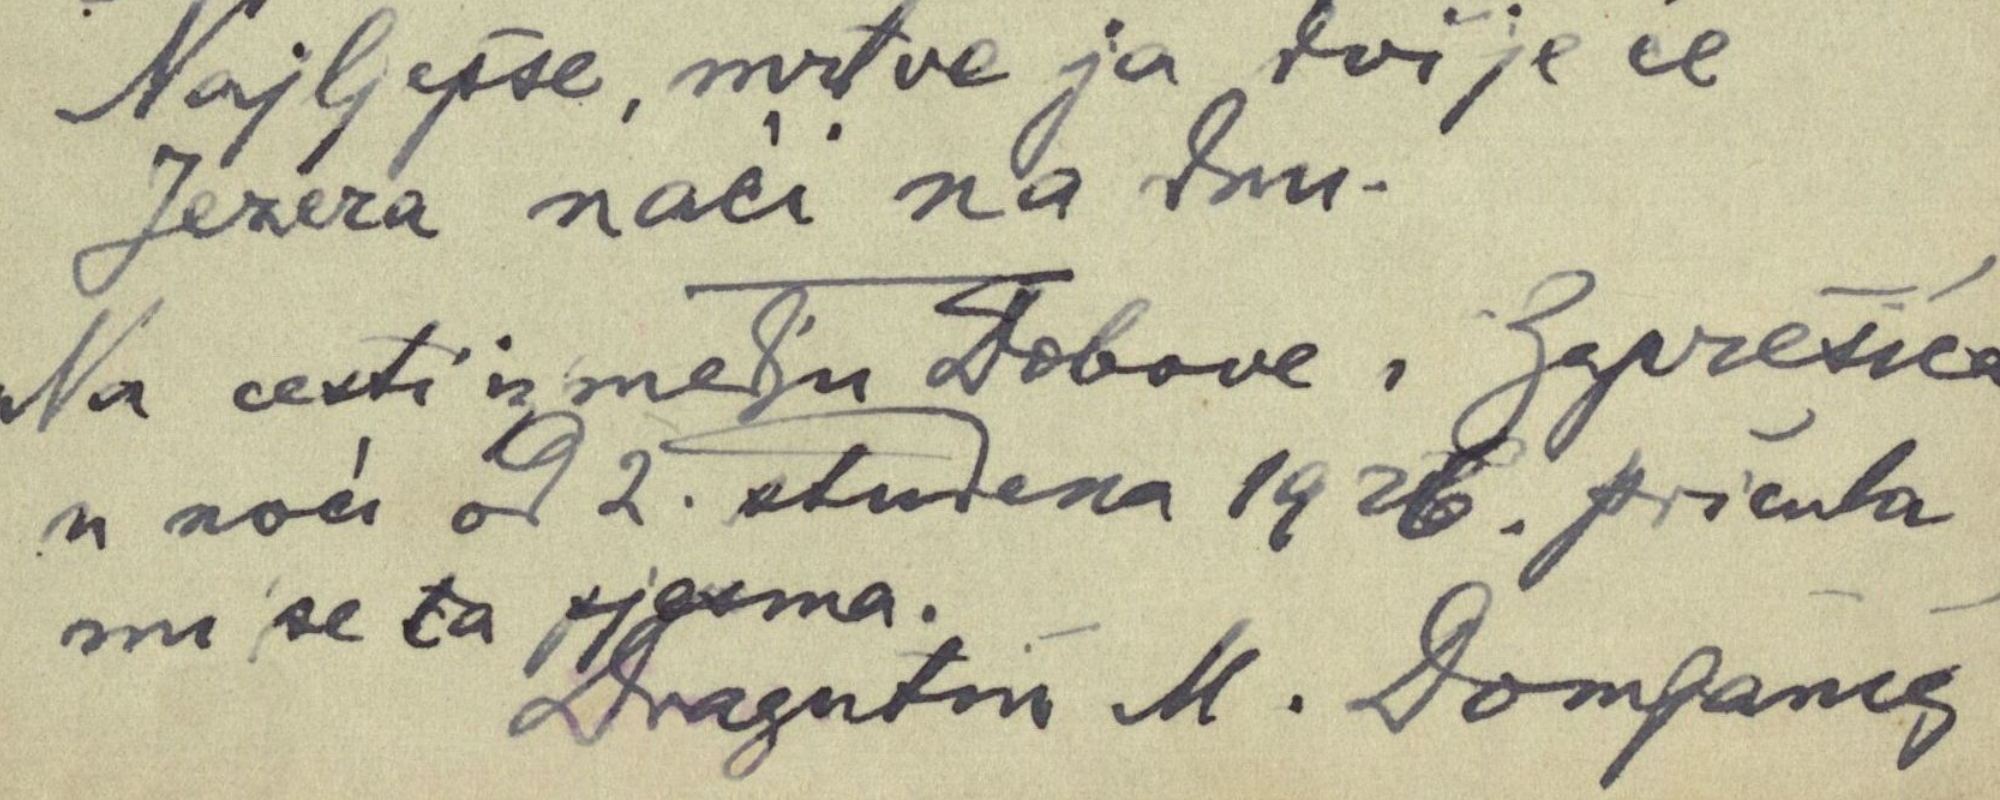 Najljepše, mrtve ja dvije će
Jezera naći na dnu.
Na cesti između Dobove i Zaprešića
u noći od 2. studena 1926. pričula
mi se ta pjesma.
Dragutin M. Domjanić